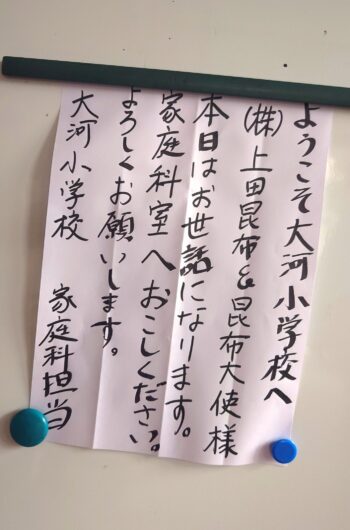 ようこそ大河小学校へ
(株)上田昆布&昆布大使様
本日はお世話になります。
家庭科室へおこしください。
よろしくお願いします。
大河小学校 家庭科担当